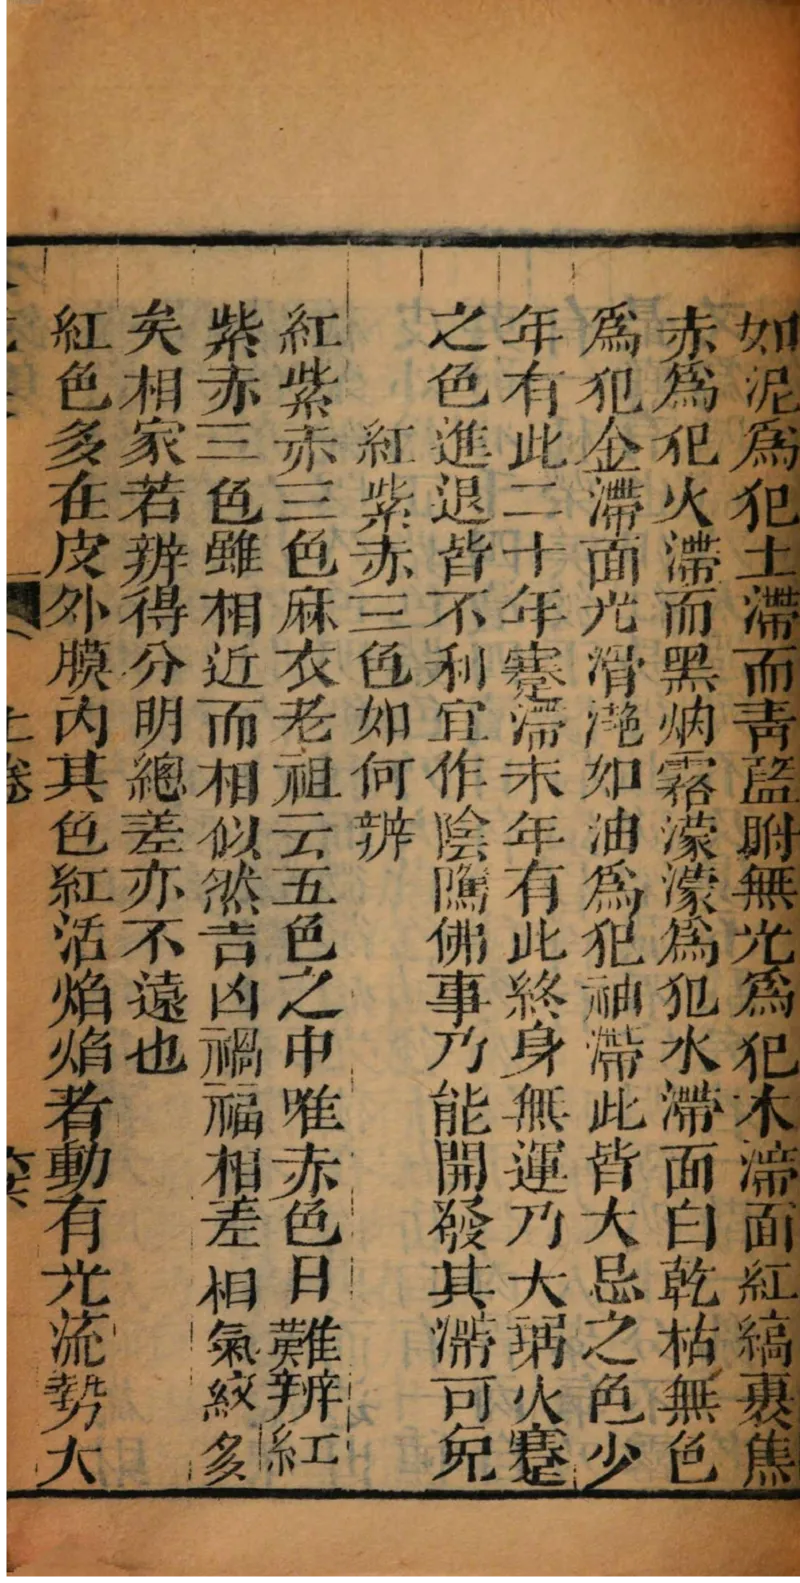 如泥爲犯土滯而青藍胕無光爲犯木滯面紅縞裹焦
赤爲犯火滯而黑烟霧濛濛爲犯水滯面白乾枯無色
爲犯金滯面光滑滟如油爲犯神滯此皆大忌之色少
年有此二十年蹇滯末年有此終身無運乃大火蹇
之色進退皆不利宜作陰隲佛事乃能開發其滯可免
紅紫赤三色如何辨
紅紫赤三色麻衣老祖云五色之中唯赤色日難辨紅
紫赤三色雖相近而相似然吉凶禍福相差相氣紋多
矣相家若辨得分明總差亦不遠也
紅色多在皮外膜內其色紅活焰焰者動有光流勢大
上卷